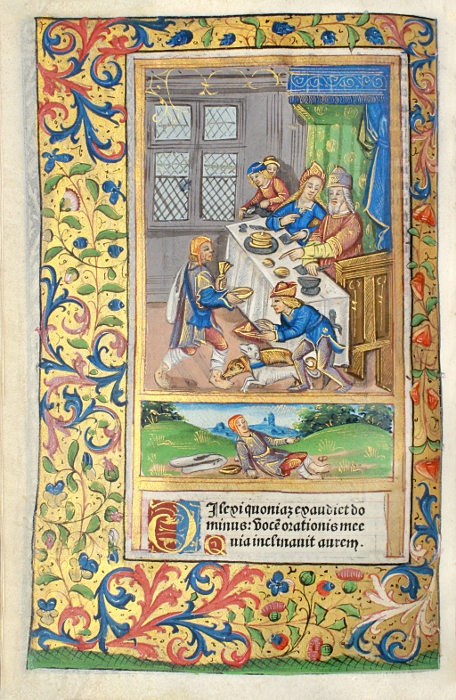 DIlexi quoniaz exaudiet do
minus: vocē orationis mee
Quia inclinauit aurem.